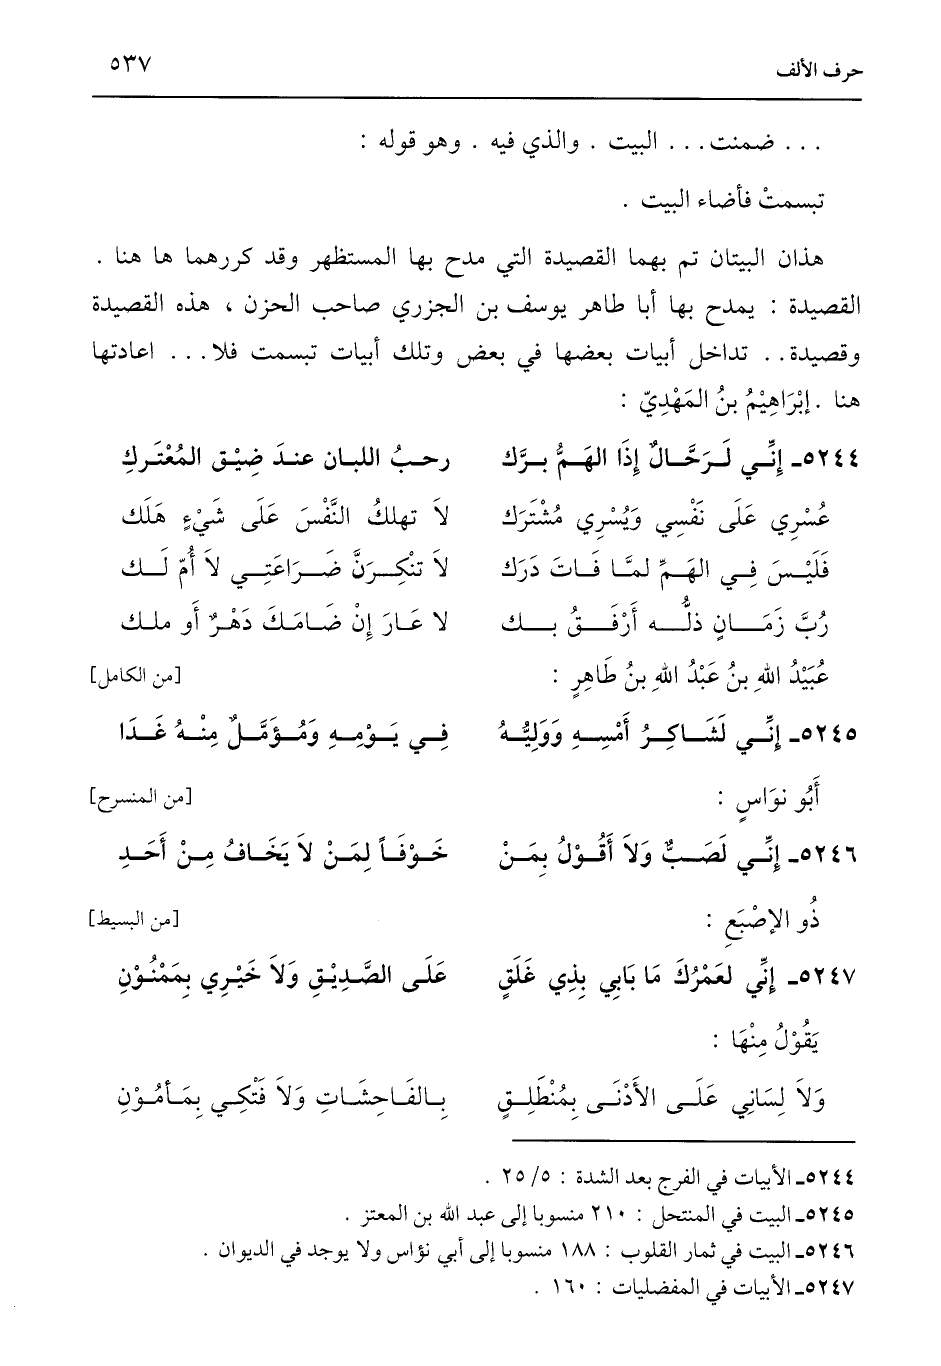 حرف الألف ٥٣٧
... ضمنت... البيت . والذي فيه . وهو قوله :
تبسمتْ فأضاء البيت .
هذان البيتان تم بهما القصيدة التي مدح بها المستظهر وقد كررهما ها هنا .
القصيدة : يمدح بها أبا طاهر يوسف بن الجزري صاحب الحزن ، هذه القصيدة
وقصيدة.. تداخل أبيات بعضها في بعض وتلك أبيات تبسمت فلا... اعادتها
هنا .إبْرَاهِيْمُ بنُ المَهْدِيّ :
٥٢٤٤ـ إنِّـي لَـرَحَّـالٌ إذَا الهَـمُّ بـرَّك رحـبُ اللبـان عنـدَ ضِيْـقِ المُعْتَـرَكِ
عُسْرِي عَلَى نَفْسِي وَيُسْرِي مُشْتَرَك لاَ تهلكُ النَّفْسَ عَلَى شَيْءٍ هَلَك
فَلَيْـسَ فِـي الهَـمِّ لمَّـا فَـاتَ دَرَك لاَ تنْكِـرَنَّ ضَـرَاعَتِـي لاَ أُمّ لَـك
رُبَّ زَمَـانٍ ذلُّـه أَرْفَـقُ بـك لا عَـارَ إنْ ضَـامَـكَ دَهْـرٌ أَو ملـك
عُبَيْدُ اللهِ بنُ عَبْدُ اللهِ بنُ طَاهِرٍ : [من الكامل]
٥٢٤٥ـ إنِّـي لَشَـاكِـرُ أَمْسِـهِ وَوَلِيُّـهُ فِـي يَـوْمِـهِ وَمُـؤَمَّـلٌ مِنْـهُ غَـدَا
أَبُو نوَاسٍ : [من المنسرح]
٥٢٤٦ـ إنِّـي لَصَـبٌّ وَلاَ أَقُـوْلُ بِمَـنْ خَـوْفَـاً لِمَـنْ لاَ يَخَـافُ مِـنْ أَحَـدِ
ذُو الإصْبَعِ : [من البسيط]
٥٢٤٧ـ إنِّي لعَمْرُكَ مَا بَابِي بِذِي غَلَقٍ عَلَـى الصَّدِيْقِ وَلاَ خَيْرِي بِمَمْنُوْنِ
يَقُوْلُ مِنْهَا :
وَلاَ لِسَانِي عَلَـى الأَدْنَـى بِمُنْطَلِـقٍ بِـالفَـاحِشَـاتِ وَلاَ فَتْكِـي بِمَـأمُـوْنِ
٥٢٤٤ـ الأبيات في الفرج بعد الشدة : ٥/ ٢٥ .
٥٢٤٥ـ البيت في المنتحل : ٢١٠ منسوبا إلى عبد الله بن المعتز .
٥٢٤٦ـ البيت في ثمار القلوب : ١٨٨ منسوبا إلى أبي نؤاس ولا يوجد في الديوان .
٥٢٤٧ـ الأبيات في المفضليات : ١٦٠ .